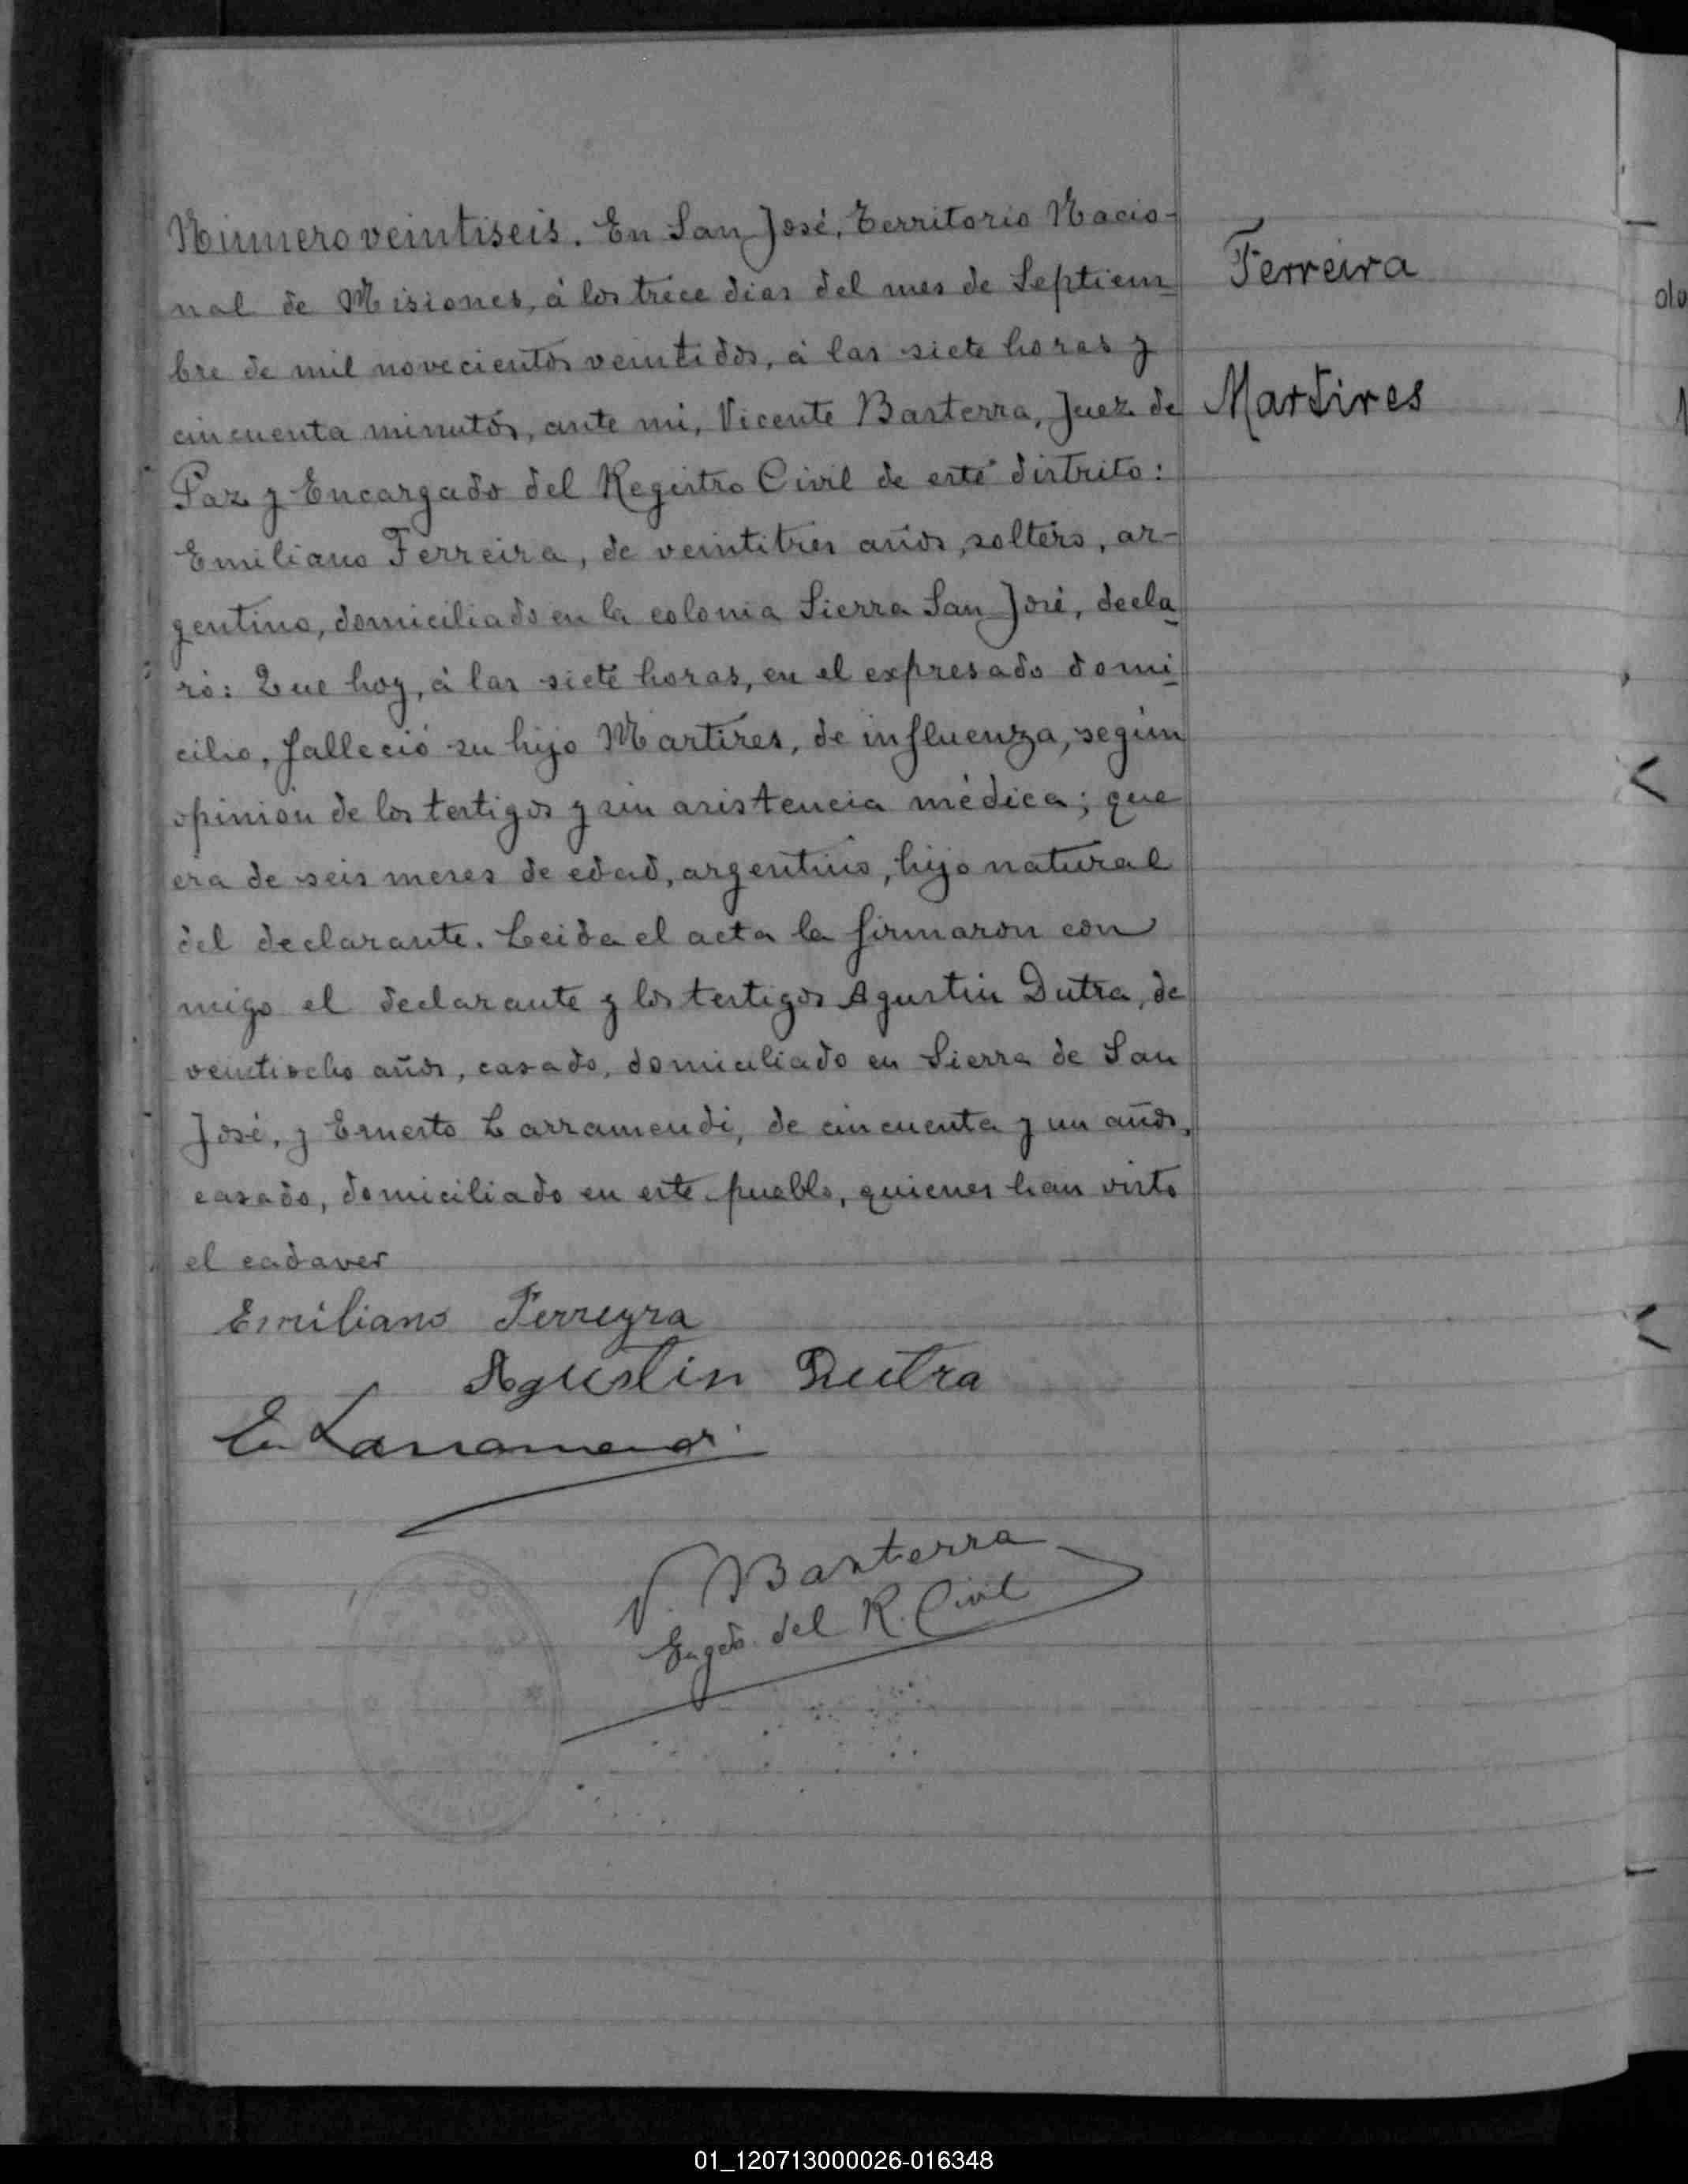 Número veintiseis. En San José, Territorio Nacio-
nal de Misiones, á los trece dias del mes de Septiem-
bre de mil novecientos veintidós, á las siete horas y
cincuenta minutos, ante mi, Vicente Basterra, Juez de
Paz y Encargado del Registro Civil de este distrito:
Emiliano Ferreira, de veintitres años, soltero, ar-
gentino, domiciliado en la colonia Sierra San José, decla-
ró: Que hoy, á las siete horas, en el expresado domi-
cilio, falleció su hijo Martires, de influenza, según
opinión de los testigos y sin asistencia médica; que
era de seis meses de edad, argentino, hijo natural
del declarante. Leida el acta la firmaron con
migo el declarante y los testigos Agustin Dutra, de
veintiocho años, casado, domiciliado en Sierra de San
José, y Ernesto Larramendi, de cincuenta y un años,
casado, domiciliado en este pueblo, quienes han visto
el cadaver
Ferreira
Martires
Emiliano Ferreyra
Agustin Dutra
E. Larramendi
V. Basterra
Engdo. del R. Civil
01_120713000026-016348